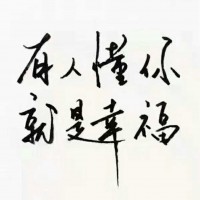 有人懂你
就是幸福